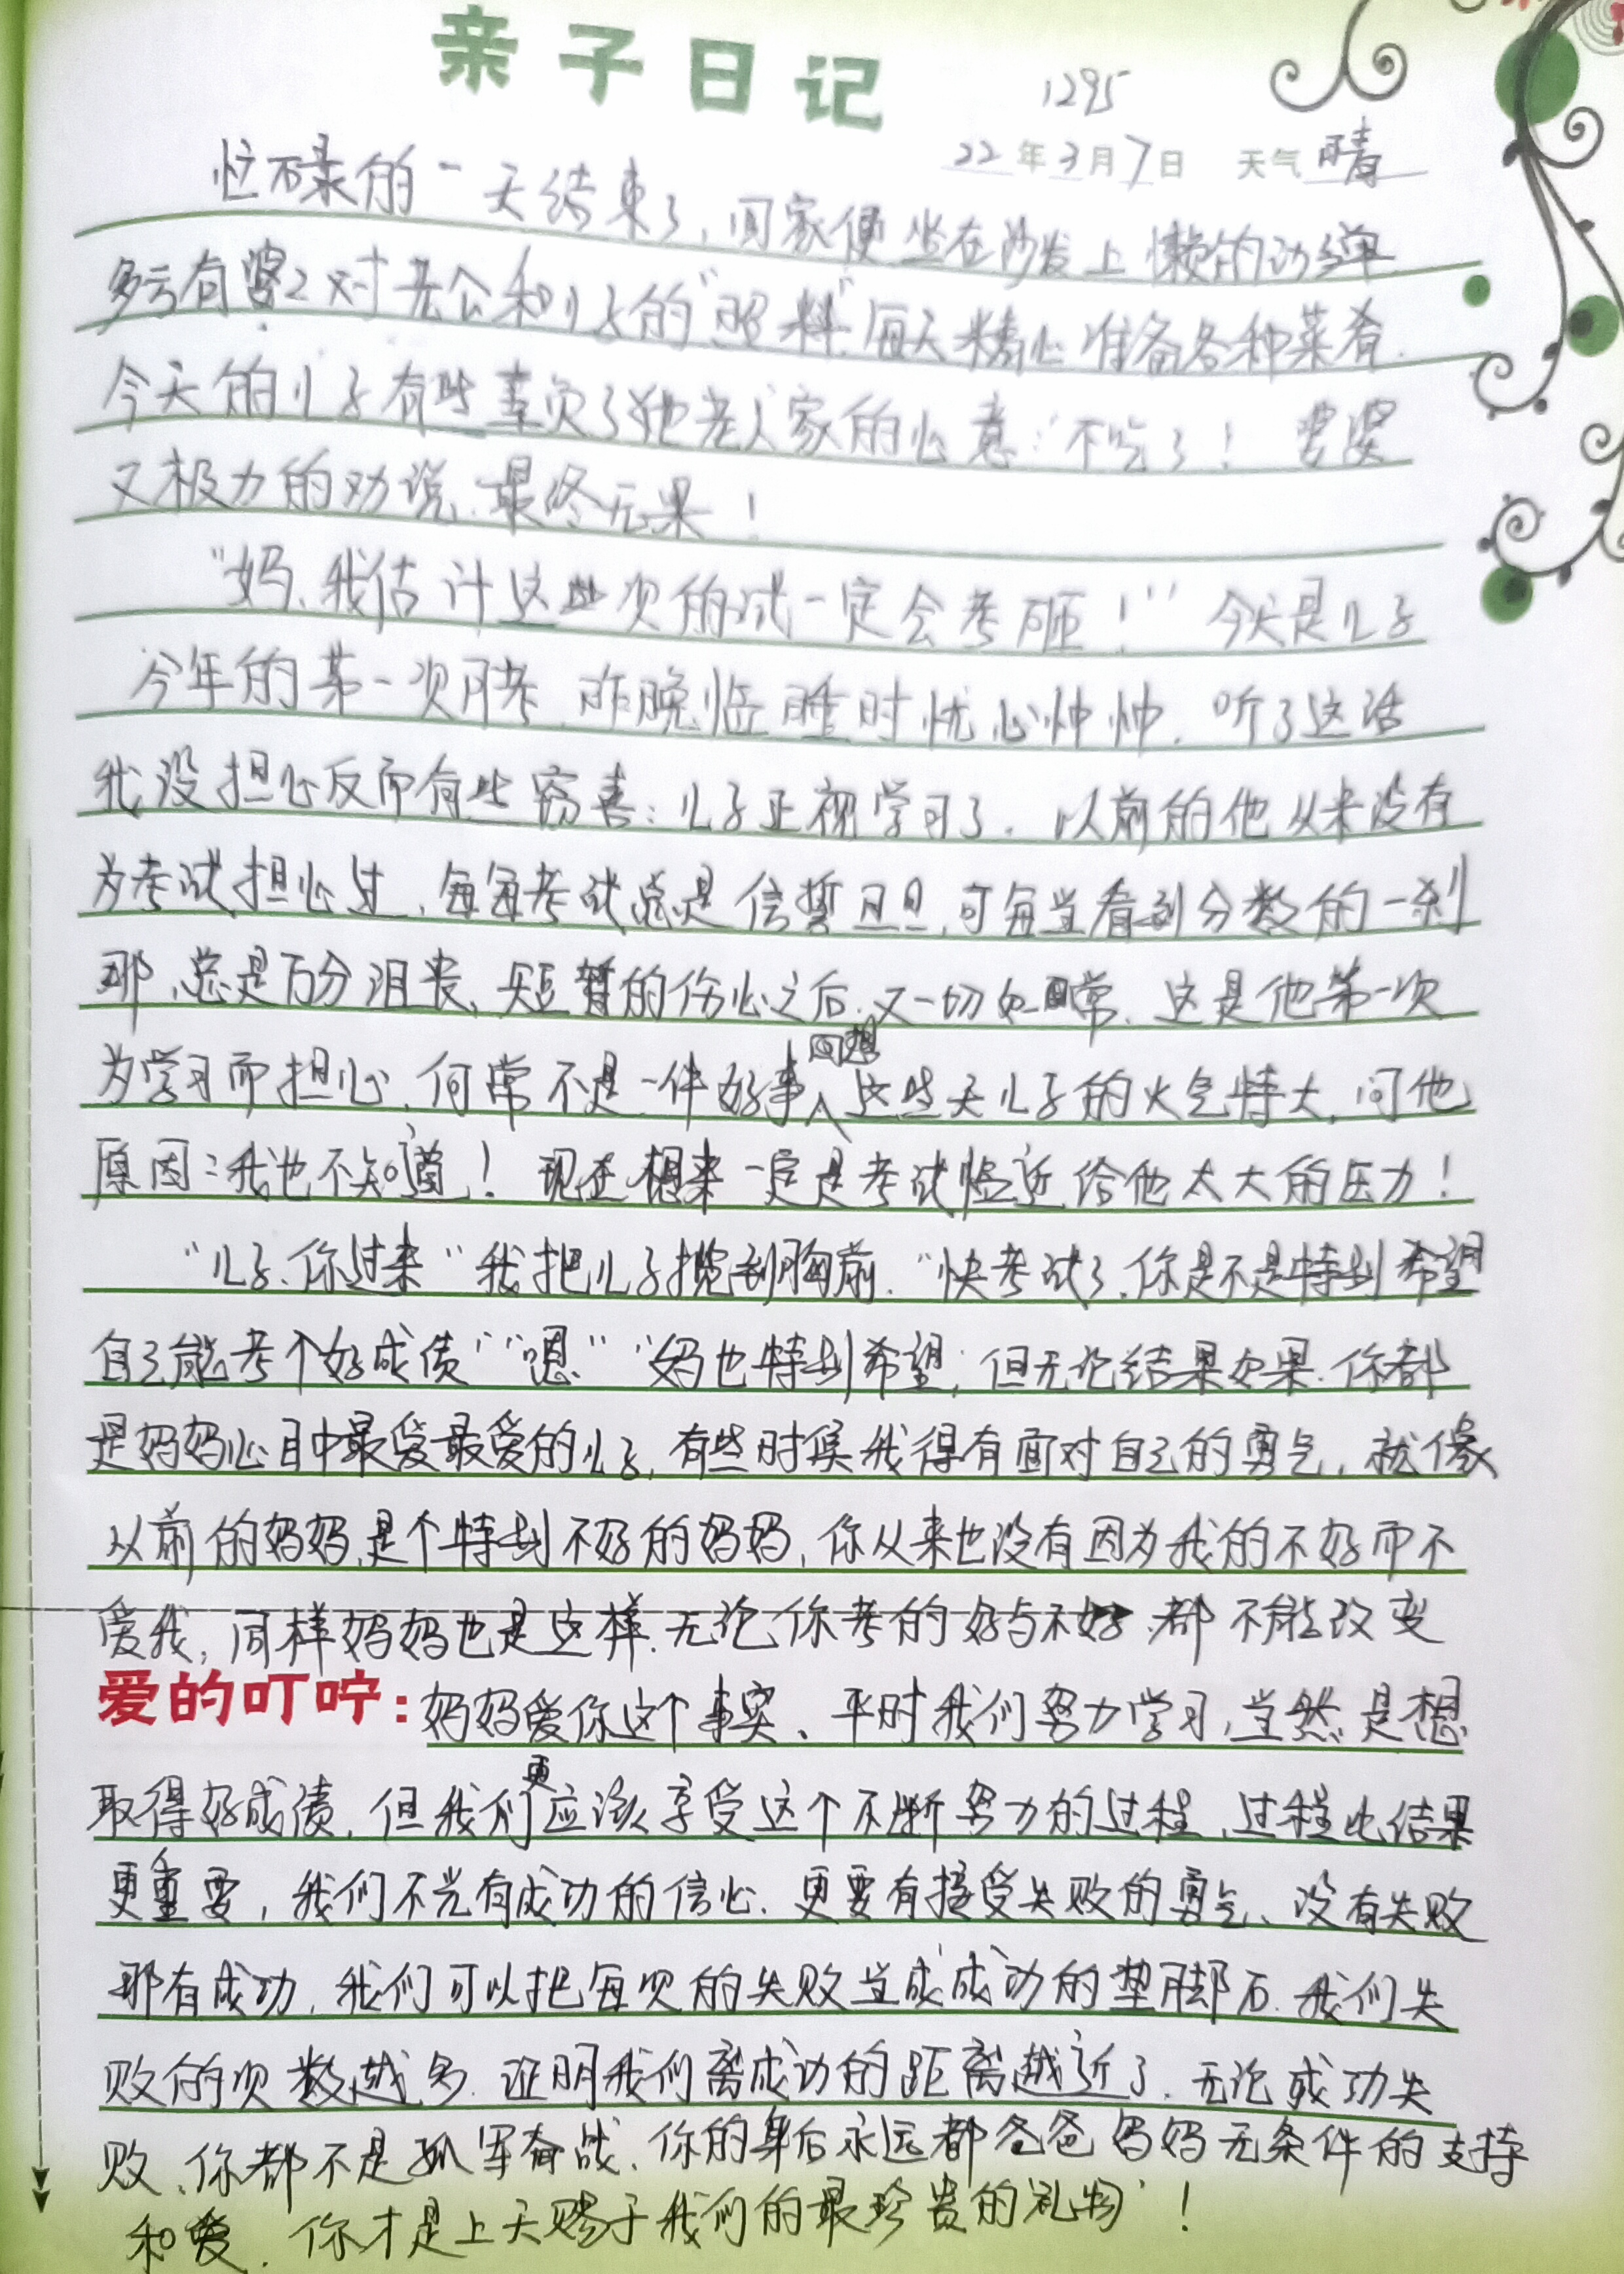 亲子日记
1295
22年3月7日 天气晴
忙碌的一天结束了，回家便坐在沙发上懒的动弹
多亏有婆婆对老公和儿子的“照料”每天精心准备各种菜肴.
今天的儿子有些辜负了她老人家的心意：“不吃了！ 婆婆
又极力的劝说、最终无果！
“妈、我估计这些次的试一定会考砸！” 今天是儿子
今年的第一次月考、昨晚临睡时忧心忡忡. 听了这话
我没担心反而有些窃喜：儿子正视学习了. 以前的他从来没有
为考试担心过、每每考试总是信誓旦旦，可每当看到分数的一刹
那、总是万分沮丧、短暂的伤心之后、又一切如常. 这是他第一次
为学习而担心、何常不是一件好事、回想这些天儿子的火气特大，问他
原因：我也不知道！ 现在想来一定是考试临近给他太大的压力！
“儿子、你过来“我把儿子揽到胸前. “快考试了、你是不是特别希望
自己能考个好成绩”“嗯”“妈也特别希望；但无论结果如果、你都
是妈妈心目中最爱最爱的儿子，有些时候我得有面对自己的勇气，就像
以前的妈妈、是个特别不好的妈妈，你从来也没有因为我的不好而不
爱我，同样妈妈也是这样、无论你考的好与不好、都不能改变
爱的叮咛：妈妈爱你这个事实、平时我们努力学习，当然是想
取得好成绩，但我们更应该享受这个不断努力的过程、过程比结果
更重要，我们不光有成功的信心、更要有接受失败的勇气、没有失败
那有成功，我们可以把每次的失败当成成功的垫脚石、我们失
败的次数越多、证明我们离成功的距离越近了、无论成功失
败、你都不是孤军奋战、你的身后永远都爸爸妈妈无条件的支持
和爱. 你才是上天赐于我们的最珍贵的礼物’！